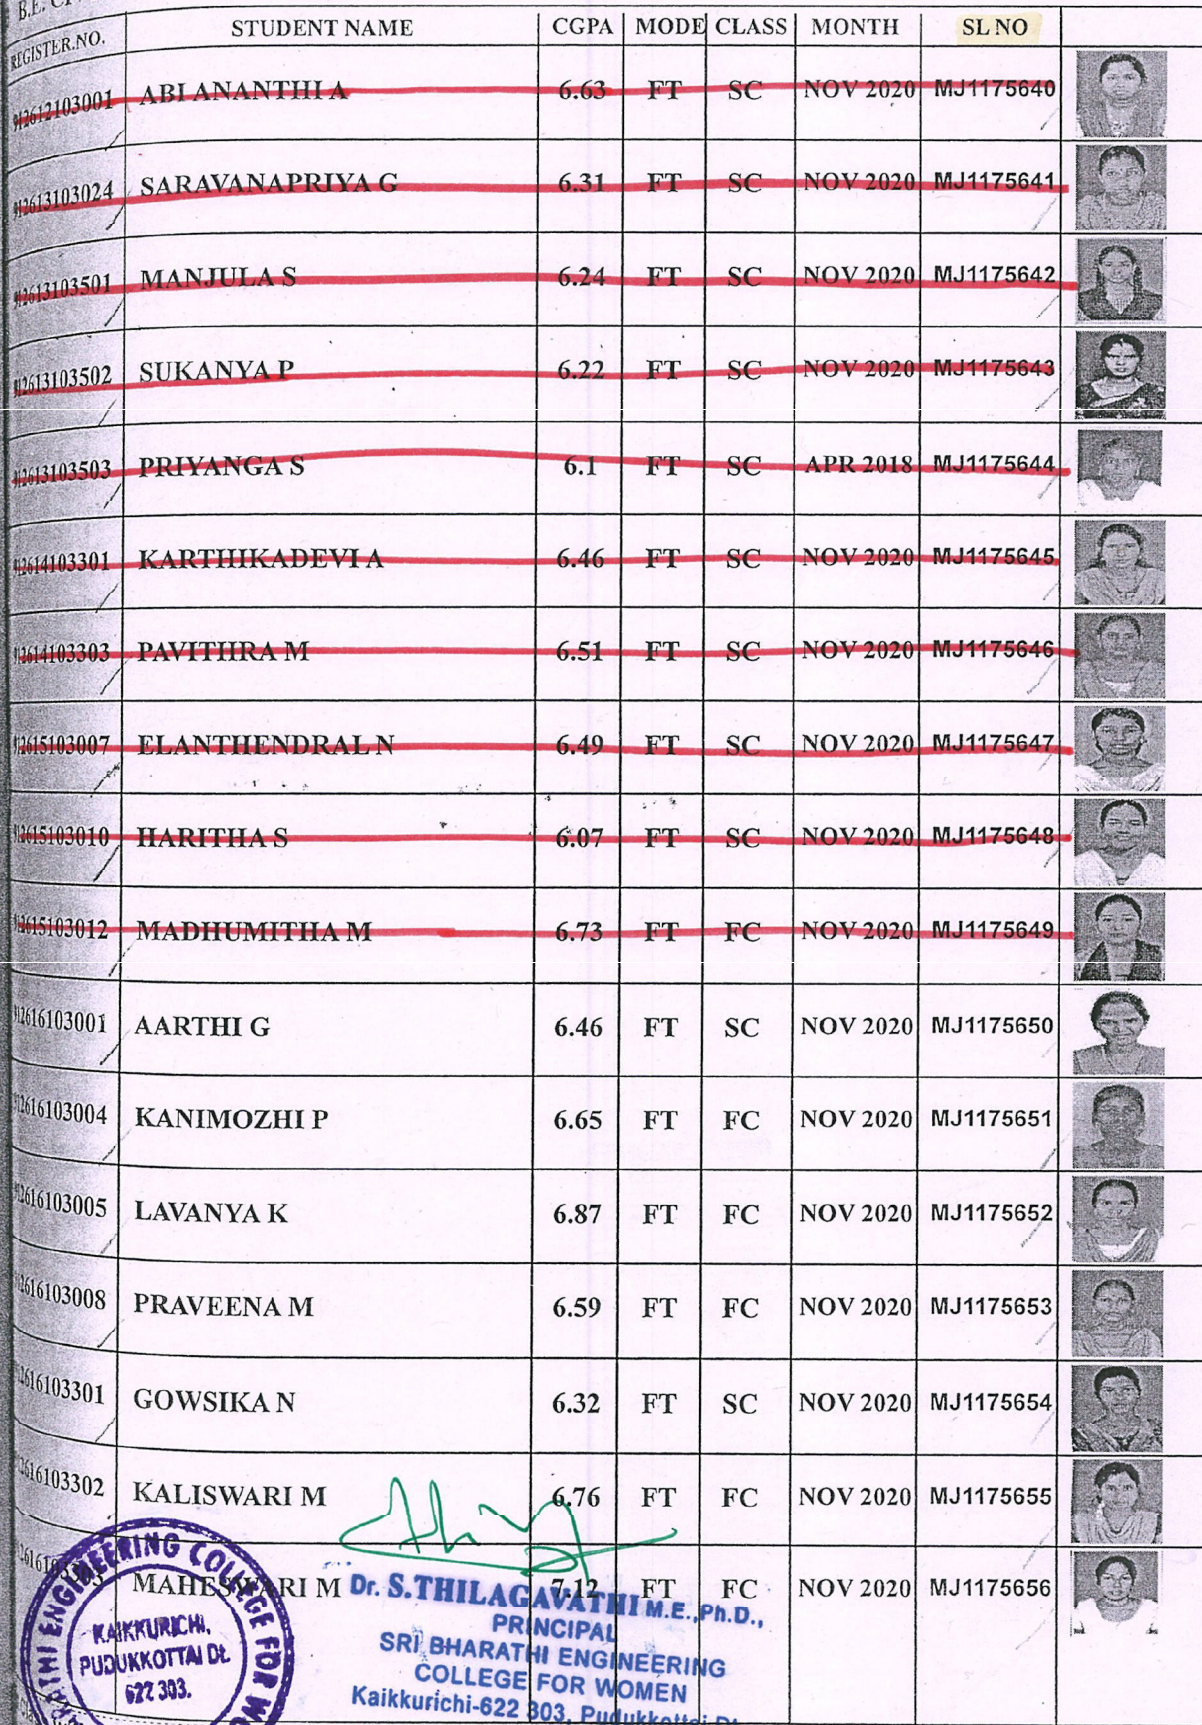 B.E.
REGISTER.NO. STUDENT NAME CGPA MODE CLASS MONTH SL NO
912612103001 ABI ANANTHI A 6.63 FT SC NOV 2020 MJ1175640
912613103024 SARAVANAPRIYA G 6.31 FT SC NOV 2020 MJ1175641
912613103501 MANJULA S 6.24 FT SC NOV 2020 MJ1175642
912613103502 SUKANYA P 6.22 FT SC NOV 2020 MJ1175643
912613103503 PRIYANGA S 6.1 FT SC APR 2018 MJ1175644
912614103301 KARTHIKADEVI A 6.46 FT SC NOV 2020 MJ1175645
912614103303 PAVITHRA M 6.51 FT SC NOV 2020 MJ1175646
912615103007 ELANTHENDRAL N 6.49 FT SC NOV 2020 MJ1175647
912615103010 HARITHA S 6.07 FT SC NOV 2020 MJ1175648
912615103012 MADHUMITHA M 6.73 FT FC NOV 2020 MJ1175649
912616103001 AARTHI G 6.46 FT SC NOV 2020 MJ1175650
912616103004 KANIMOZHI P 6.65 FT FC NOV 2020 MJ1175651
912616103005 LAVANYA K 6.87 FT FC NOV 2020 MJ1175652
912616103008 PRAVEENA M 6.59 FT FC NOV 2020 MJ1175653
2616103301 GOWSIKA N 6.32 FT SC NOV 2020 MJ1175654
2616103302 KALISWARI M 6.76 FT FC NOV 2020 MJ1175655
MAHESWARI M 7.12 FT FC NOV 2020 MJ1175656
ENGINEERING COLLEGE FOR
KAIKKURICHI,
PUDUKKOTTAI Dt.
622 303.
Dr. S.THILAGAVATHI M.E.,Ph.D.,
PRINCIPAL
SRI BHARATHI ENGINEERING
COLLEGE FOR WOMEN
Kaikkurichi-622 303, Pudukkottai Dt.